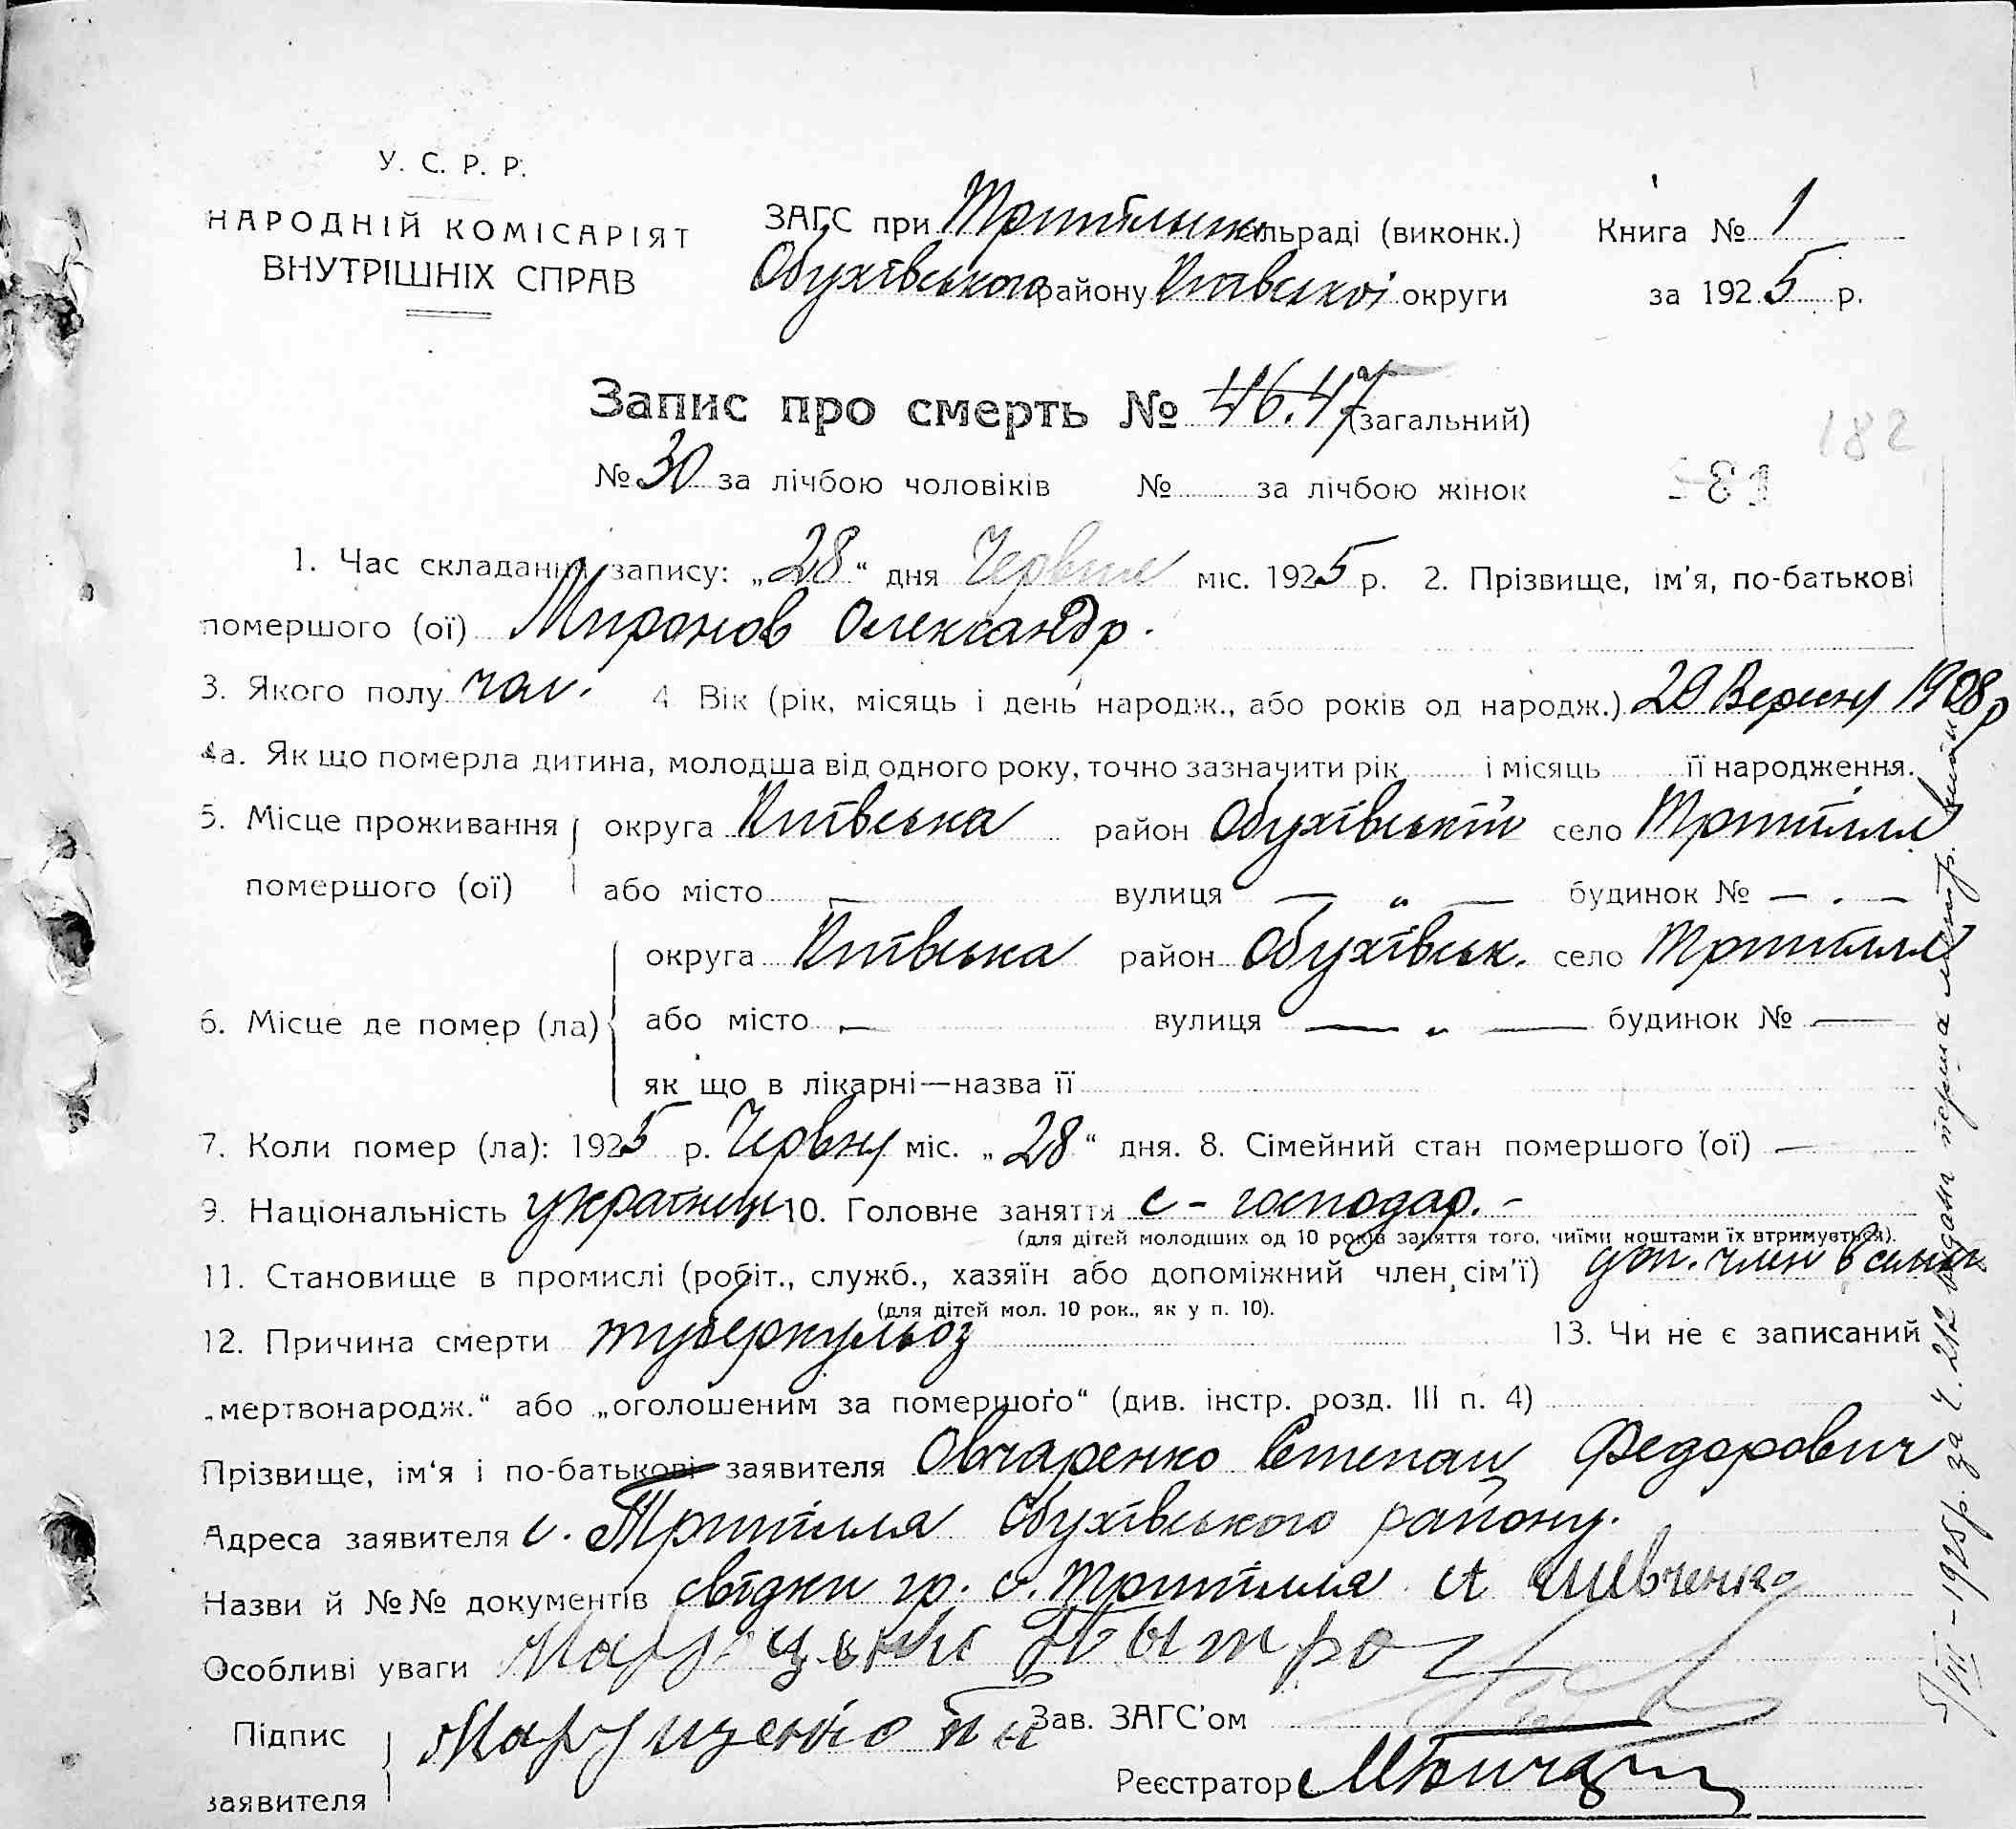 У. С. Р. Р.
НАРОДНІЙ КОМІСАРІЯТ
ВНУТРІШНІХ СПРАВ
ЗАГС при Трипільськ сільраді (виконк.)
Обухівського району Київської округи
Книга № 1
за 1925 р.
Запис про смерть № 46.47 (загальний)
182
№ 30 за лічбою чоловіків № за лічбою жінок
181
1. Час складання запису: „28“ дня Червня міс. 1925 р. 2. Прізвище, ім'я, по-батькові
помершого (ої) Миронов Олександр.
3. Якого полу чол. 4 Вік (рік, місяць і день народж., або років од народж.) 20 Вересня 1908 р
4а. Як що померла дитина, молодша від одного року, точно зазначити рік і місяць її народження.
5. Місце проживання округа Київська район Обухівський село Трипілля
помершого (ої) або місто — вулиця — „ — будинок № — . —
округа Київська район Обухівськ. село Трипілля
6. Місце де помер (ла) або місто — вулиця — „ — будинок № —
як що в лікарні—назва її
7. Коли помер (ла): 1925 р. Червня міс. „28“ дня. 8. Сімейний стан помершого (ої) —
9. Національність українець 10. Головне заняття с - господар. -
(для дітей молодших од 10 років заняття того, чиїми коштами їх втримується).
11. Становище в промислі (робіт., служб., хазяїн або допоміжний член сім'ї) доп. член в сем'ї
(для дітей мол. 10 рок., як у п. 10).
12. Причина смерти туберкульоз 13. Чи не є записаний
„мертвонародж.“ або „оголошеним за помершого“ (див. інстр. розд. III п. 4)
Прізвище, ім'я і по-батькові заявителя Овчаренко Степан Федорович
Адреса заявителя с. Трипілля Обухівського району.
Назви й №№ документів свідки гр. с. Трипілля А Шевченко
Особливі уваги Марущенко Пытро
Підпис
заявителя Марущенко Пи
Зав. ЗАГС'ом
Реєстратор
5/VIII-1925 р. за Ч. 212 видан перша